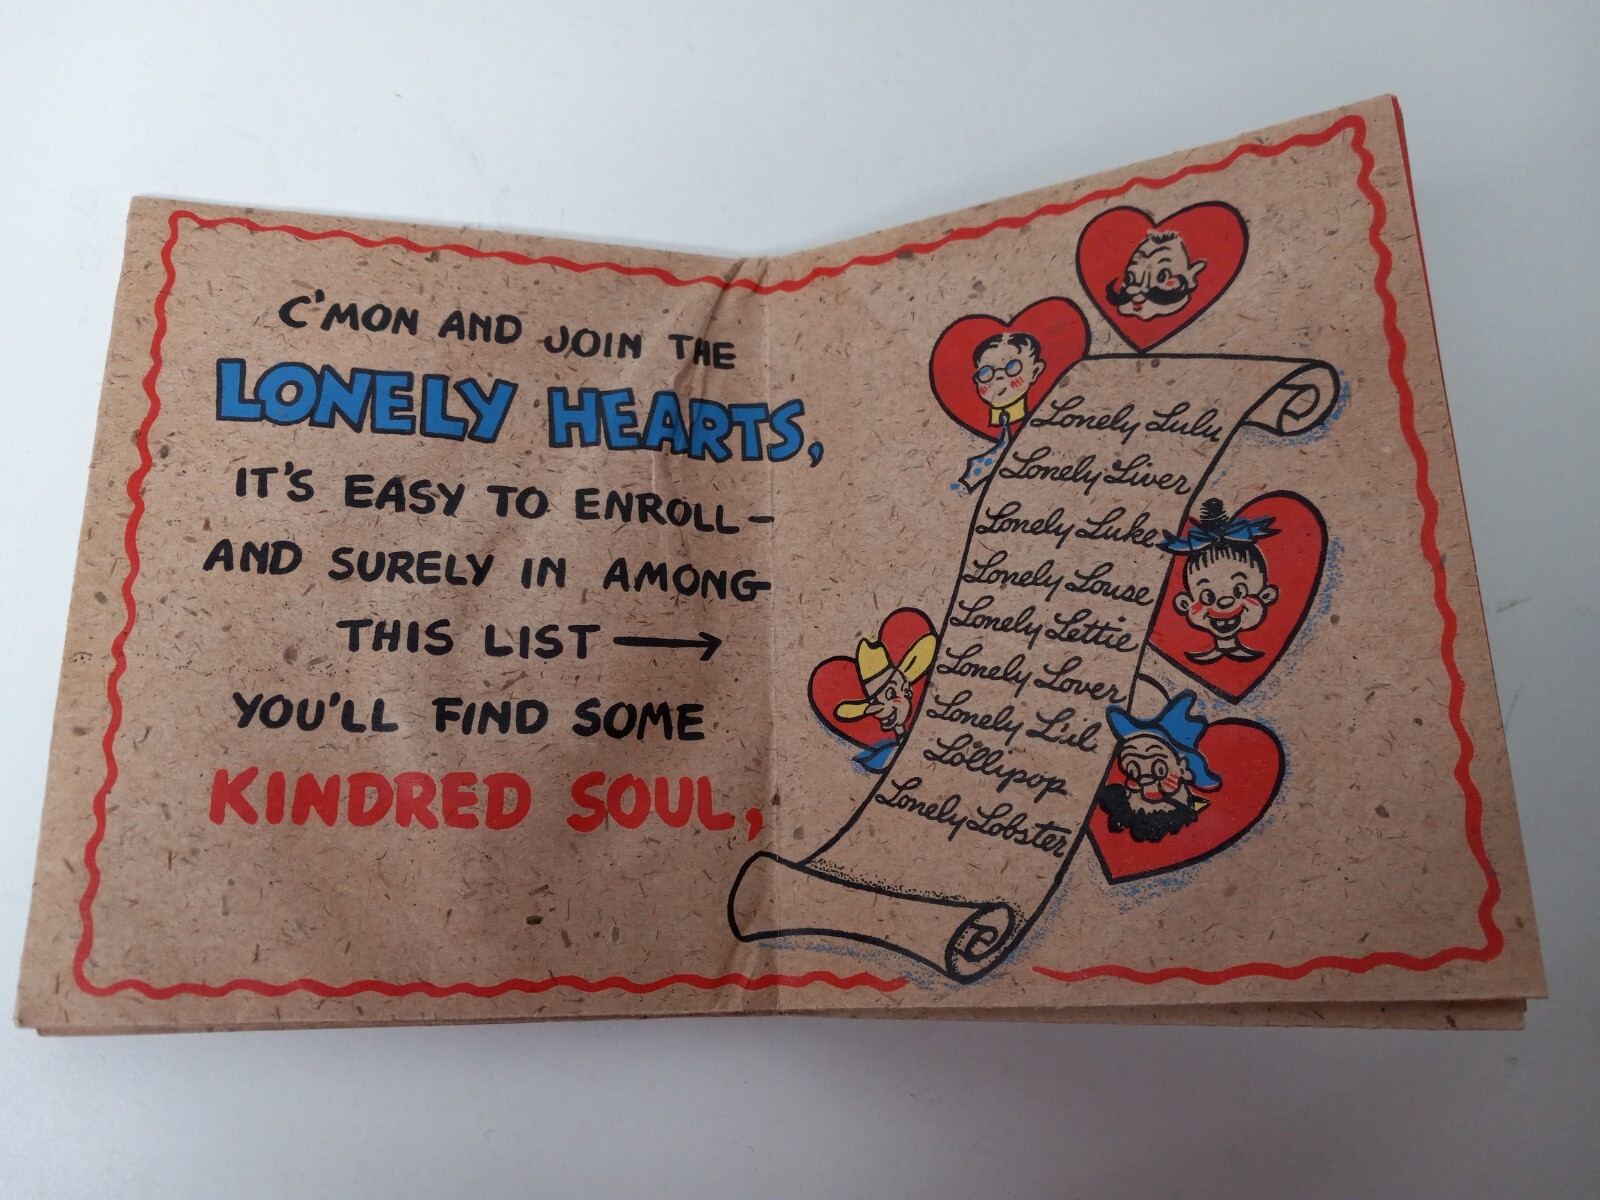 C'MON AND JOIN THE
LONELY HEARTS,
IT'S EASY TO ENROLL–
AND SURELY IN AMONG
THIS LIST →
YOU'LL FIND SOME
KINDRED SOUL,
Lonely Lulu
Lonely Liver
Lonely Luke
Lonely Louse
Lonely Lettie
Lonely Lover
Lonely L'il
Lollipop
Lonely Lobster